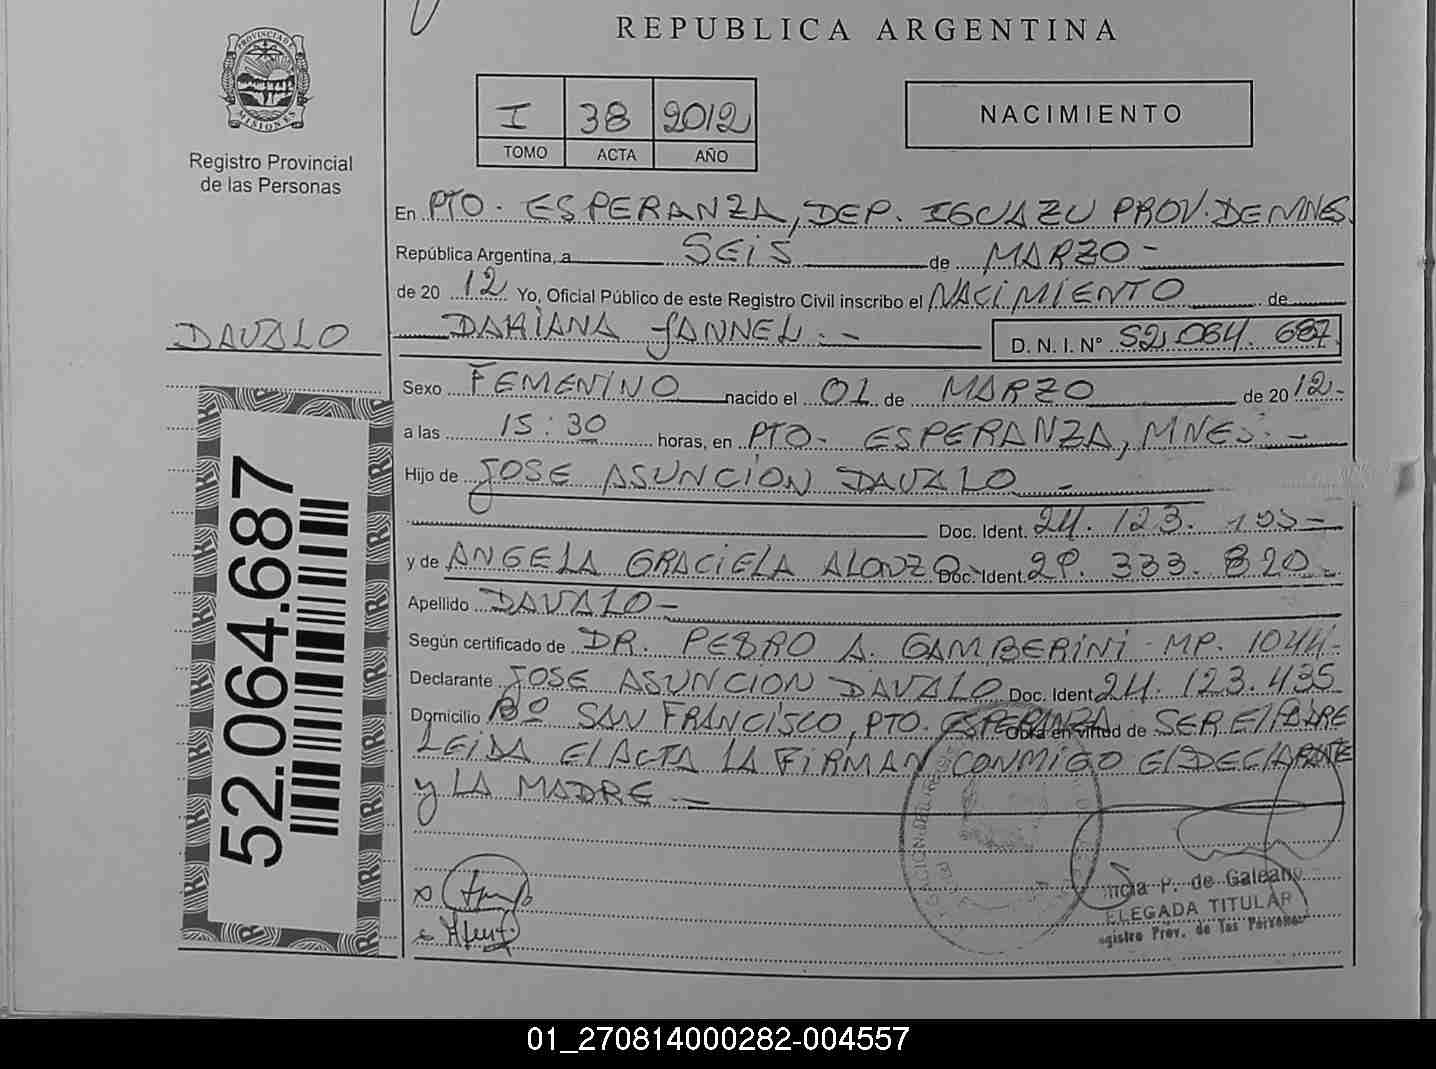 REPUBLICA ARGENTINA
PROVINCIA DE
MISIONES
Registro Provincial
de las Personas
I 38 2012
TOMO ACTA AÑO
NACIMIENTO
En PTO. ESPERANZA, DEP. IGUAZU PROV. DE MNES.
República Argentina, a SEIS de MARZO -
de 20 12 Yo, Oficial Público de este Registro Civil inscribo el NACIMIENTO de
DAVALO
DAHIANA JANNEL . -
D. N. I. N° 52.064.687
Sexo FEMENINO nacido el 01 de MARZO de 20 12 -
a las 15:30 horas, en PTO. ESPERANZA, MNES. -
Hijo de JOSE ASUNCION DAVALO -
Doc. Ident. 24.123.
y de ANGELA GRACIELA ALONZO Doc. Ident. 29.333.820 -
Apellido DAVALO -
Según certificado de DR. PEDRO A. GAMBERINI - MP. 1044 -
Declarante JOSE ASUNCION DAVALO Doc. Ident. 24.123.435
Domicilio Bº SAN FRANCISCO, PTO. ESPERANZA Obra en virtud de SER El PADRE
LEIDA El ACTA LA FIRMAN CONMIGO El DEClARANTE
y LA MADRE. -
52.064.687
P. de Galeano
ELEGADA TITULAR
egistro Prov. de las Personas
01_270814000282-004557